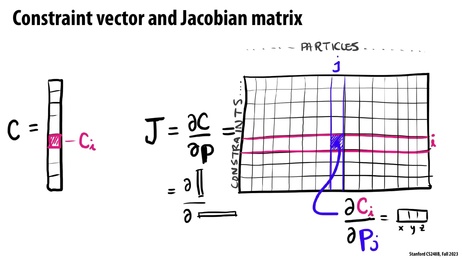 Constraint vector and Jacobian matrix
PARTICLES
j
CONSTRAINTS
C = Ci
J = ∂C/∂p =
i
= ∂/∂
∂Ci/∂Pj =
x y z
Stanford CS248B, Fall 2023